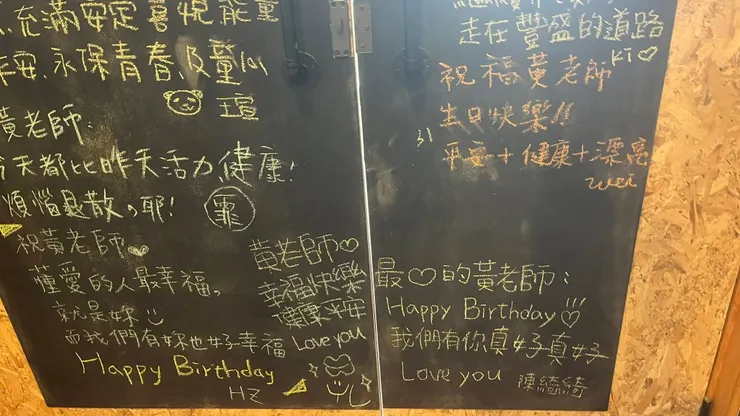 充滿安定喜悅能量
平安、永保青春及童心
瑄
黃老師:
今天都比昨天活力、健康!
煩惱退散、耶!
霏
祝黃老師
懂愛的人最幸福,
就是妳
而我們有妳也好幸福
Happy Birthday
HZ
黃老師♡
幸福快樂
健康平安
Love you
走在豐盛的道路
Ki♡
祝福黃老師
生日快樂!!
平安+健康+漂亮
wei
最♡的黃老師:
Happy Birthday
我們有你真好真好
Love you 陳綺綺